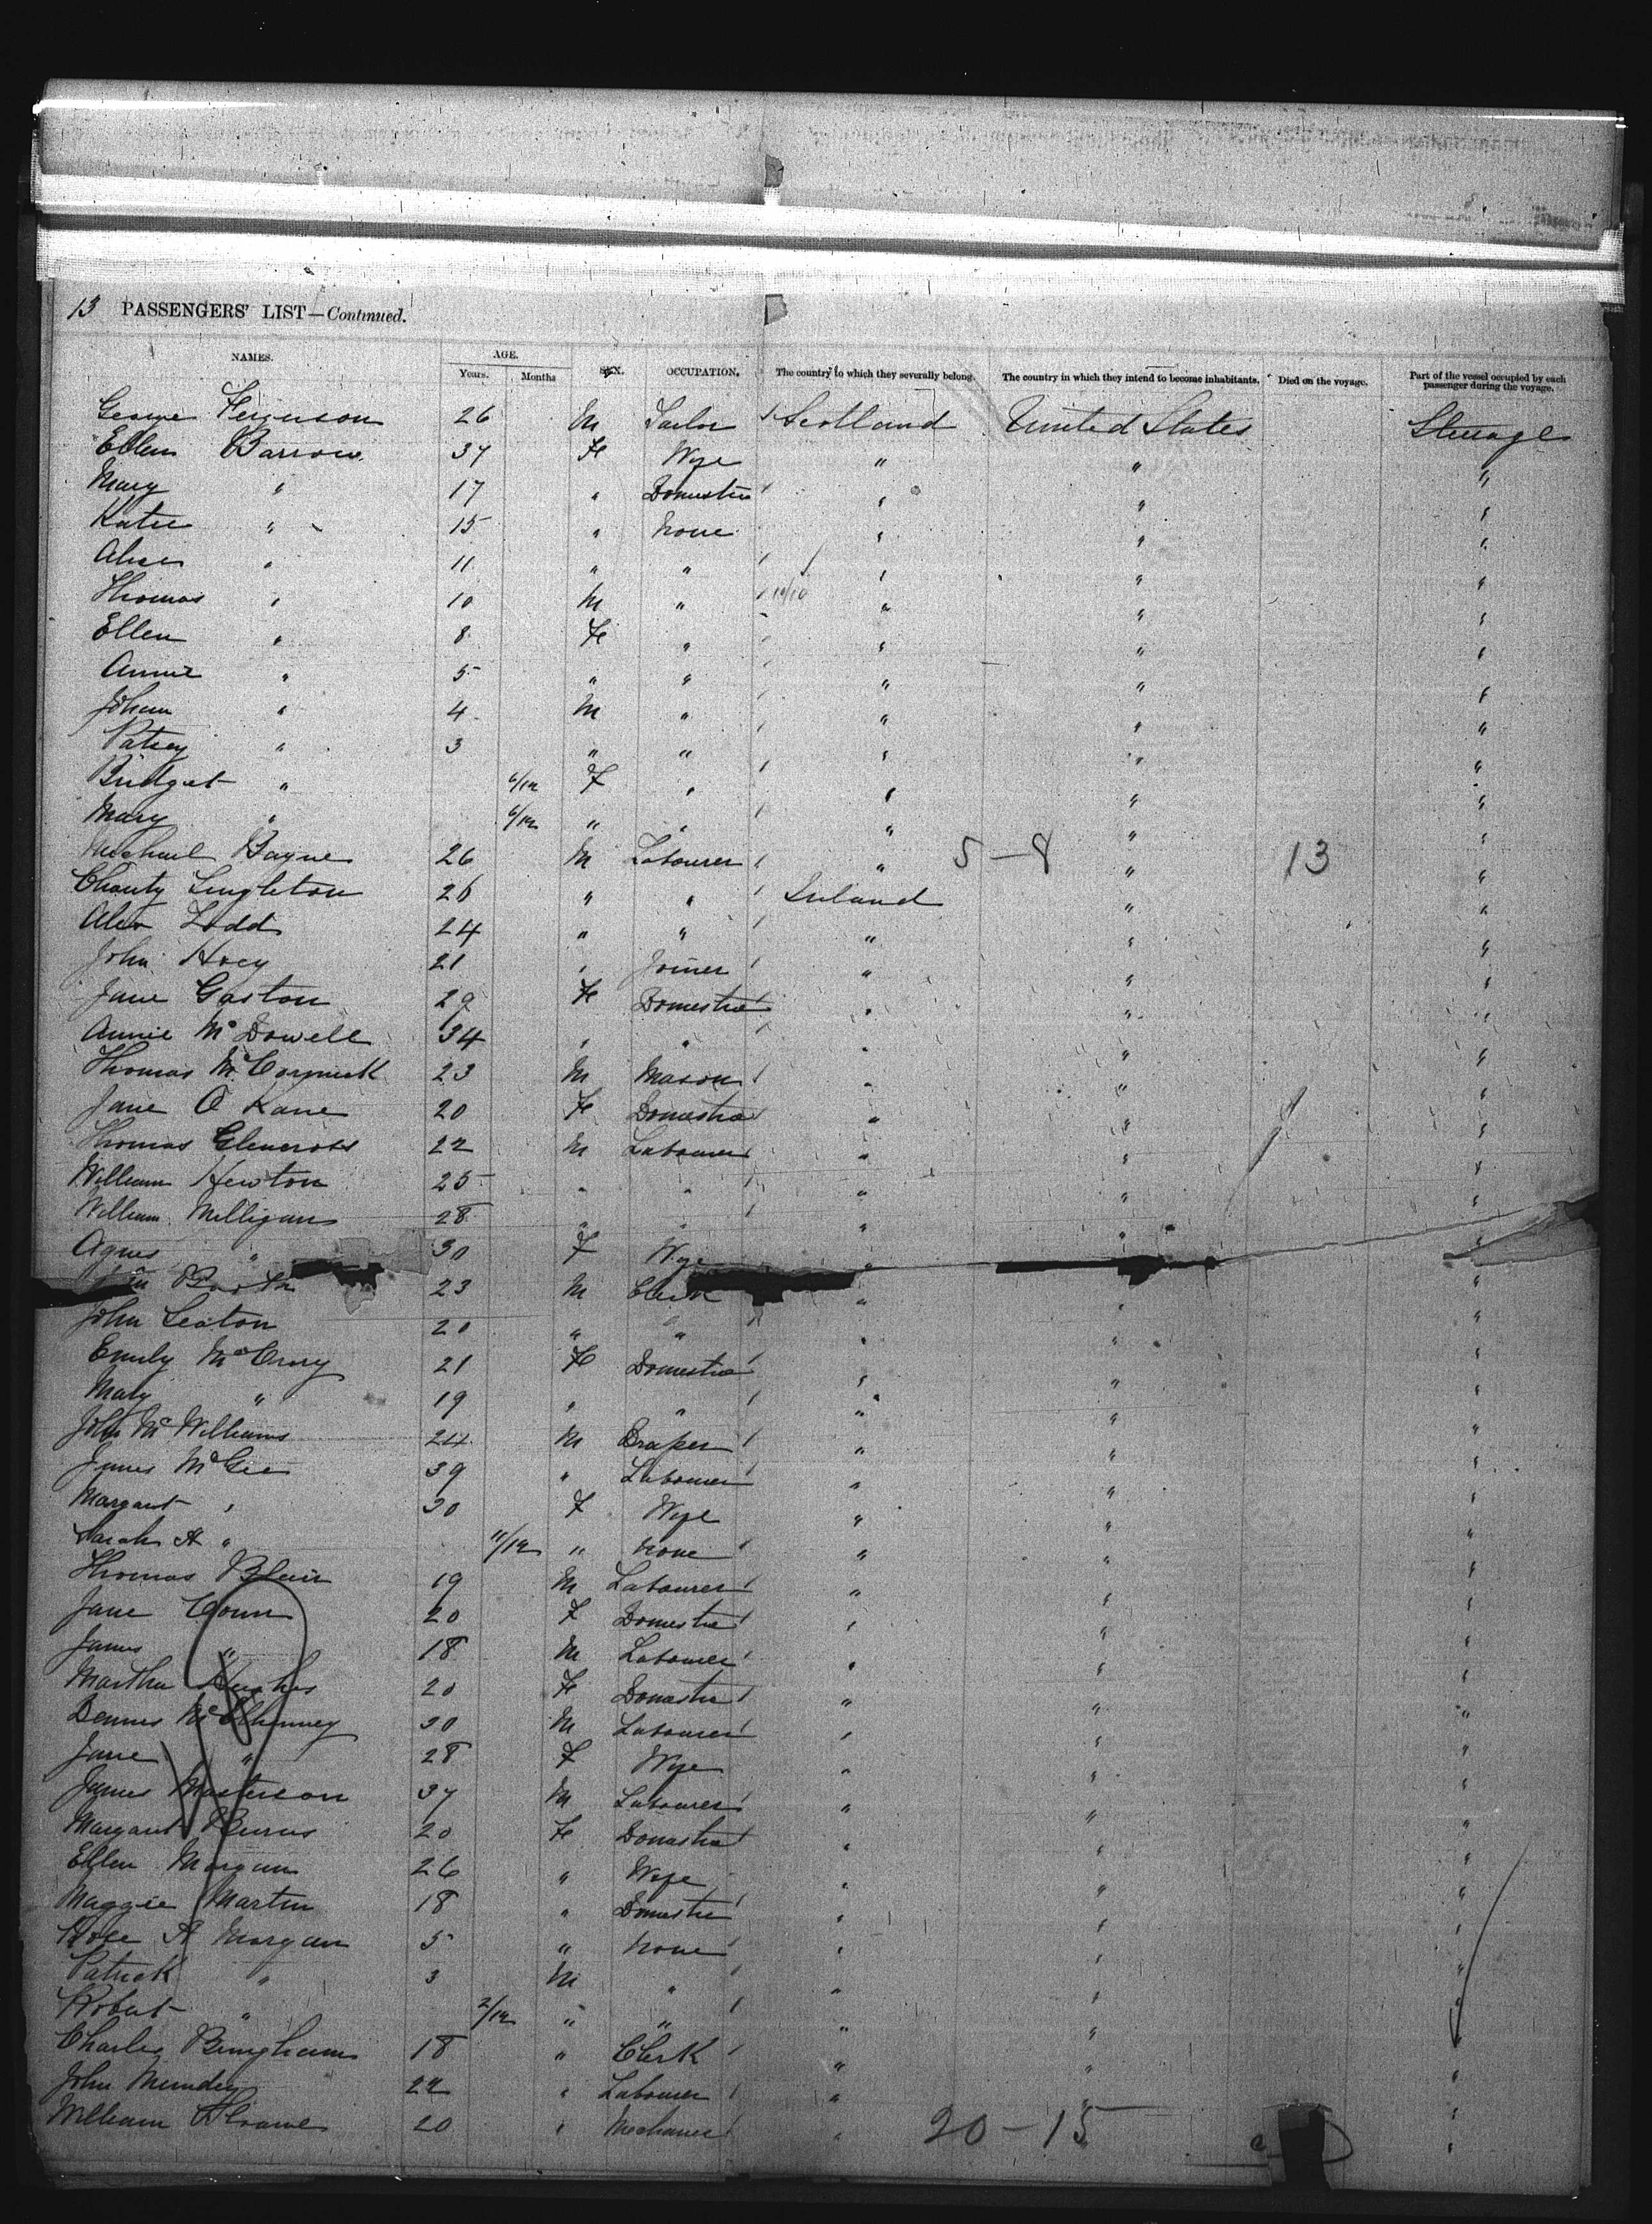 13 PASSENGERS' LIST—Continued.
NAMES. AGE. Years. Months SEX. OCCUPATION. The country to which they severally belong. The country in which they intend to become inhabitants. Died on the voyage. Part of the vessel occupied by each passenger during the voyage.
George Ferguson 26 M Tailor Scotland United States Steerage
Ellen Barrow 37 Fe Wife " " "
Mary " 17 " Domestic " " "
Katie " 15 " None " " "
Alice " 11 " " " " "
Thomas " 10 M " " " "
Ellen " 8 Fe " " " "
Annie " 5 " " " " "
John " 4 M " " " "
Patsey " 3 " " " " "
Bridget " 6/12 F " " " "
Mary " 6/12 " " " " "
Michael Bayne 26 M Labourer " 5-8 " 13 "
Singleton 26 " " Ireland " "
Alex Todd 24 " " " " "
John Hoey 21 " Joiner " " "
Jane Gaston 29 Fe Domestic " " "
Annie McDowell 34 " " " " "
Thomas McCormick 23 M Mason " " "
Jane O'Kane 20 Fe Domestic " " "
Thomas Glencross 22 M Labourer " " "
William Newton 25 " " " " "
William Milligan 28 " " " " "
Agnes " 30 F Wife " " "
23 M Clerk " " "
John Seaton 20 " " " " "
Emily McCrory 21 Fe Domestic " " "
Mary " 19 " " " " "
John McWilliams 24 M Draper " " "
James McGee 39 " Labourer " " "
Margaret " 30 F Wife " " "
Sarah A " 11/12 " None " " "
Thomas Blair 19 M Labourer " " "
Jane Conn 20 F Domestic " " "
James " 18 M Labourer " " "
Martha Hughes 20 Fe Domestic " " "
Dennis McElhinney 30 M Labourer " " "
Jane " 28 F Wife " " "
James Masterson 37 M Labourer " " "
Margaret Burns 20 Fe Domestic " " "
Ellen Morgan 26 " Wife " " "
Maggie Martin 18 " Domestic " " "
Rose A Morgan 5 " None " " "
Patrick " 3 M " " " "
Robert " 2/12 " " " " "
Charles Bingham 18 " Clerk " " "
John Mundey 22 " Labourer " " "
William 20 " Mechanic " " "
20-15